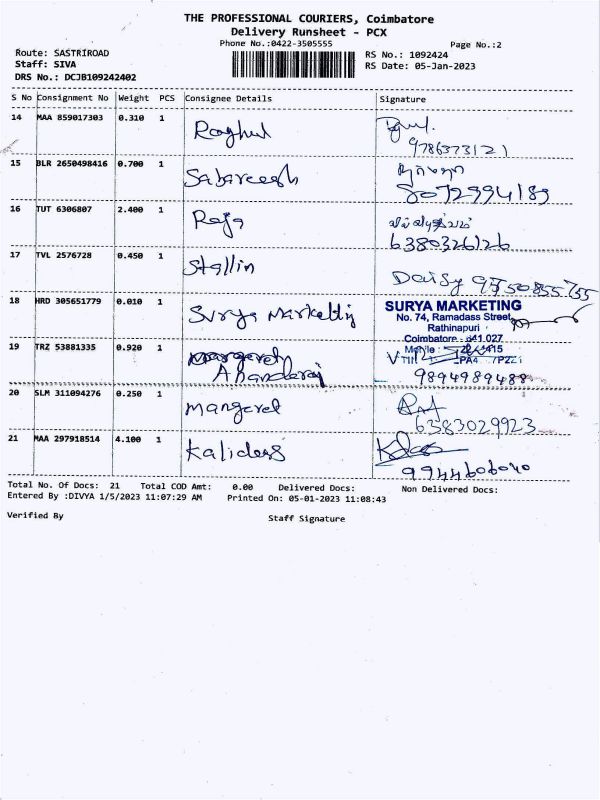 THE PROFESSIONAL COURIERS, Coimbatore
Delivery Runsheet - PCX
Phone No.:0422-3505555
Page No.:2
Route: SASTRIROAD
Staff: SIVA
DRS No.: DCJB109242402
RS No.: 1092424
RS Date: 05-Jan-2023
S No Consignment No Weight PCS Consignee Details Signature
14 MAA 859017303 0.310 1 Raghul
9786373121
15 BLR 2650498416 0.700 1 Sabareesh
8072994189
16 TUT 6306807 2.400 1 Raja
6380326126
17 TVL 2576728 0.450 1 Stallin Daisy
18 HRD 305651779 0.010 1 Surya Marketing
SURYA MARKETING
No. 74, Ramadass Street,
Rathinapuri
Coimbatore - 641 027
19 TRZ 53881335 0.920 1
9894989488
20 SLM 311094276 0.250 1 Mangarel
6383029923
21 MAA 297918514 4.100 1 Kalidass
9944606040
Total No. Of Docs: 21 Total COD Amt: 0.00 Delivered Docs: Non Delivered Docs:
Entered By :DIVYA 1/5/2023 11:07:29 AM Printed On: 05-01-2023 11:08:43
Verified By Staff Signature